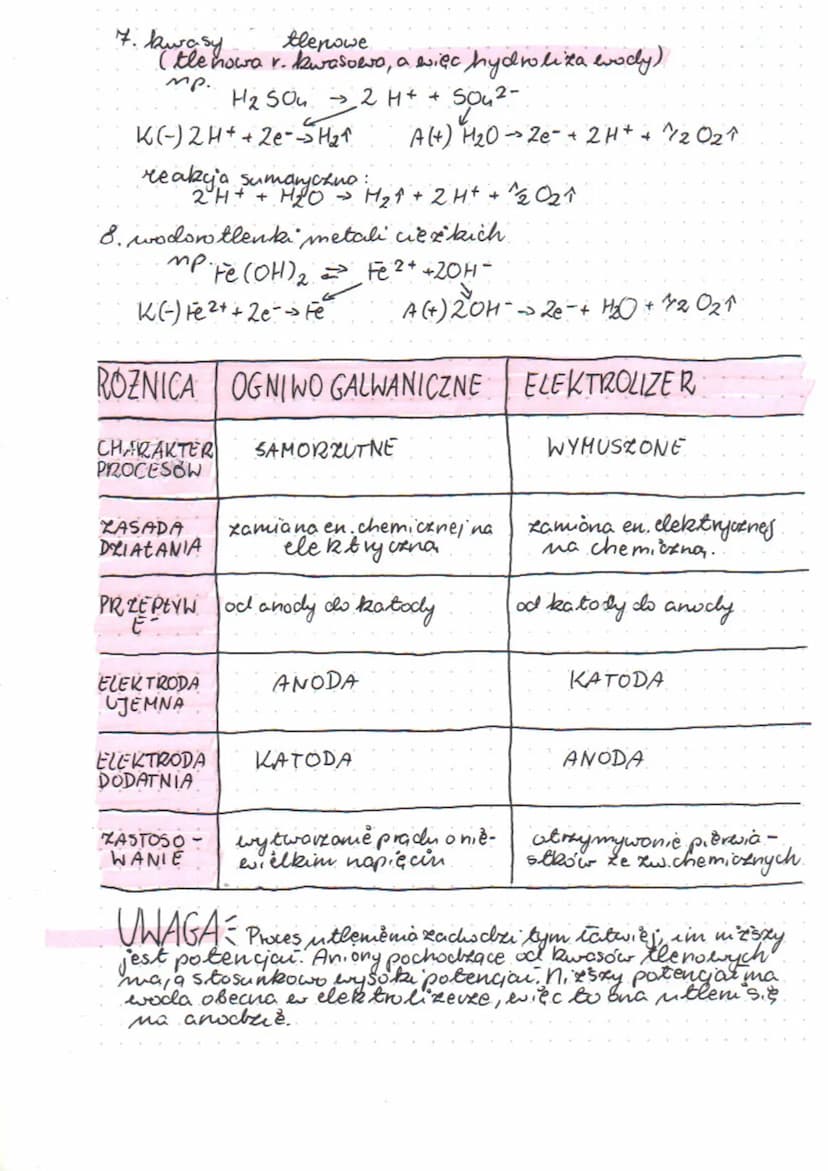 7. kwasy tlenowe
(tlenowa r. kwasowa, a więc hydroliza wody)
np.
H2SO4 → 2 H+ + SO4 2-
K(-) 2H+ + 2e- → H2↑ A(+) H2O → 2e- + 2H+ + 1/2 O2↑
reakcja sumaryczna:
2H+ + H2O → H2↑ + 2H+ + 1/2 O2↑
8. wodorotlenki metali ciężkich
np. Fe(OH)2 ⇌ Fe2+ + 2OH-
K(-) Fe2+ + 2e- → Fe A(+) 2OH- → 2e- + H2O + 1/2 O2↑
RÓŻNICA OGNIWO GALWANICZNE ELEKTROLIZER
CHARAKTER PROCESÓW SAMORZUTNE WYMUSZONE
ZASADA DZIAŁANIA zamiana en. chemicznej na elektryczną zamiana en. elektrycznej na chemiczną.
PRZEPŁYW e- od anody do katody od katody do anody
ELEKTRODA UJEMNA ANODA KATODA
ELEKTRODA DODATNIA KATODA ANODA
ZASTOSO-WANIE wytwarzanie prądu o nie-wielkim napięciu otrzymywanie pierwia-stków ze zw. chemicznych
UWAGA: Proces utleniania zachodzi tym łatwiej, im niższy
jest potencjał. Aniony pochodzące od kwasów tlenowych
mają stosunkowo wysoki potencjał. Niższy potencjał ma
woda obecna w elektrolizerze, więc to ona utleni się
na anodzie.